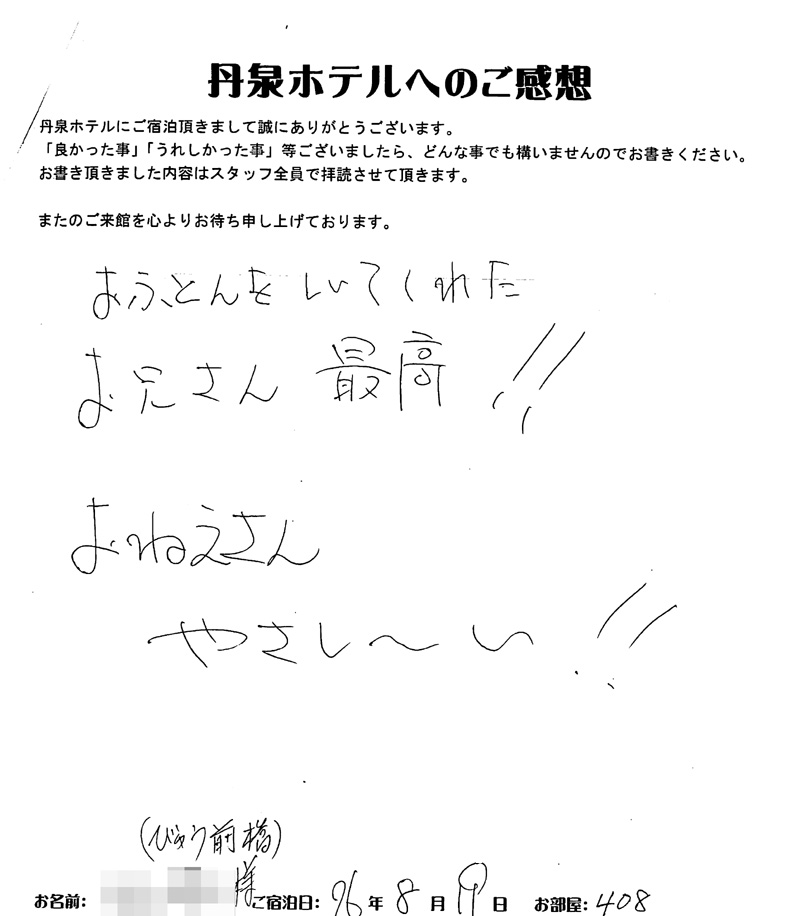 丹泉ホテルへのご感想
丹泉ホテルにご宿泊頂きまして誠にありがとうございます。
「良かった事」「うれしかった事」等ございましたら、どんな事でも構いませんのでお書きください。
お書き頂きました内容はスタッフ全員で拝読させて頂きます。
またのご来館を心よりお待ち申し上げております。
おふとんをしいてくれた
お兄さん 最高!!
おねえさん
やさし〜い!!
(びゅう前橋)
お名前: 様 ご宿泊日: 96年 8月 19日 お部屋: 408